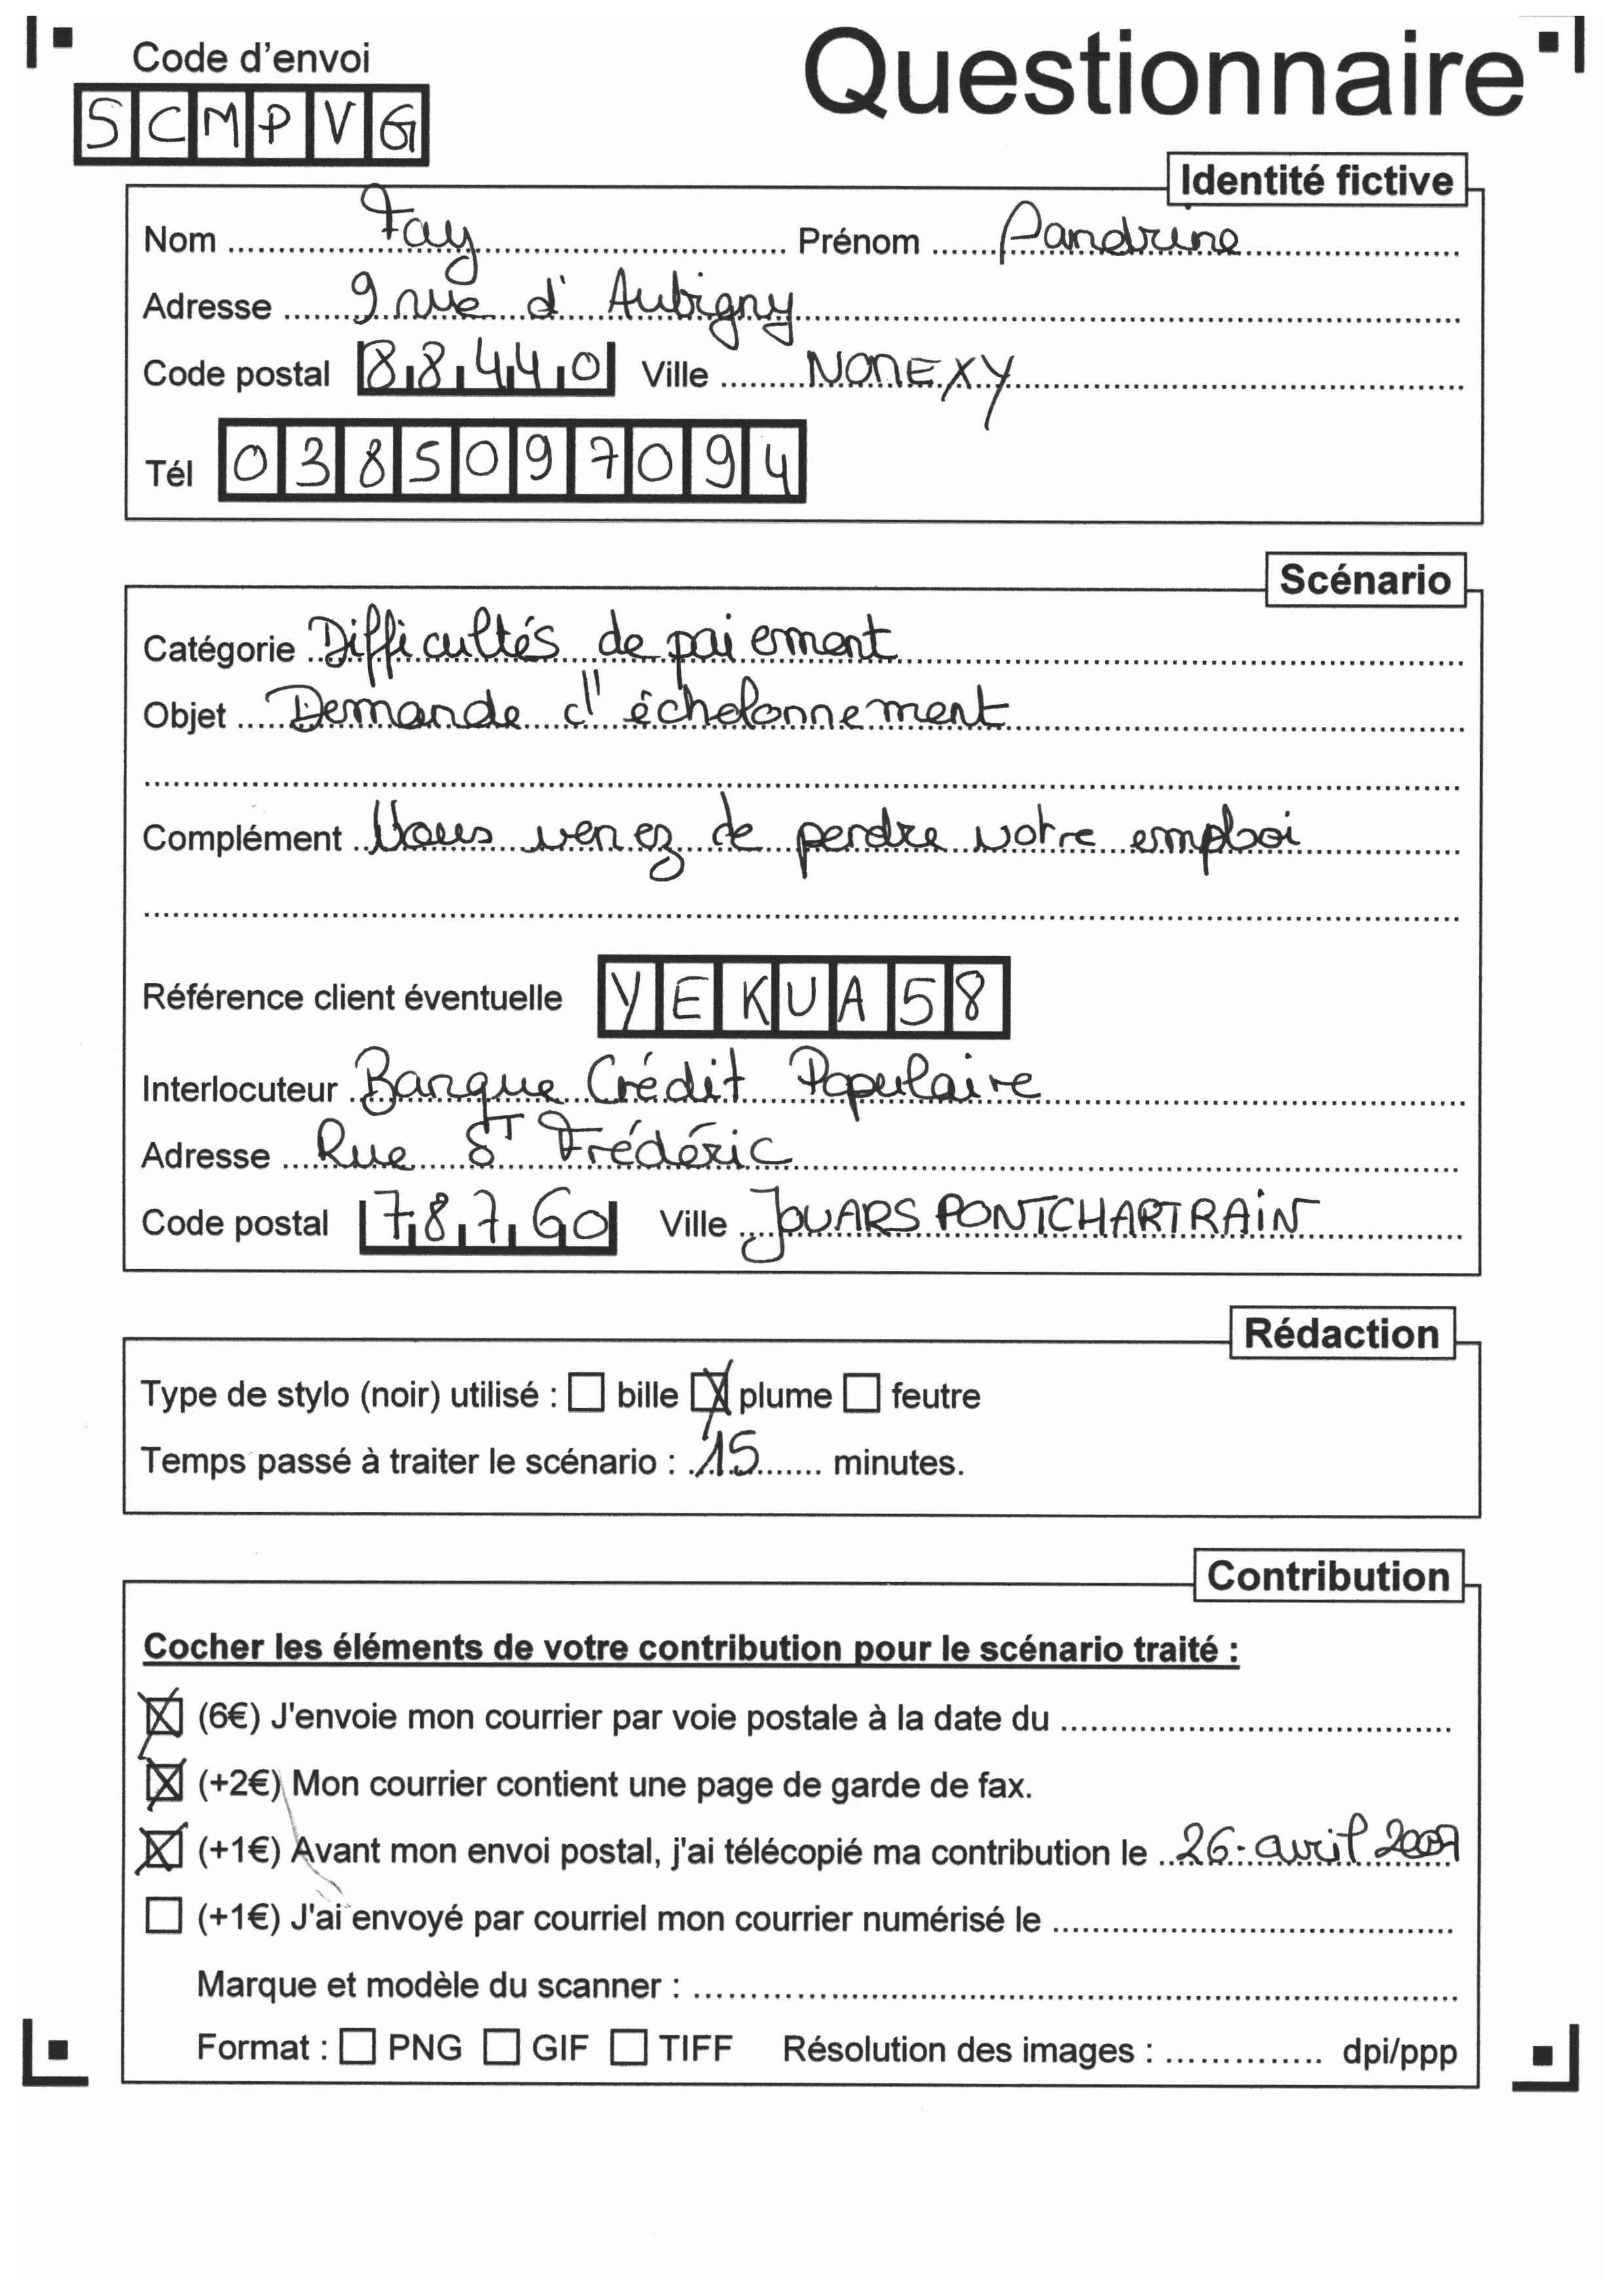 Code d'envoi
Questionnaire
SCMPVG
Identité fictive
Nom Fay Prénom Sandrine
Adresse 9 rue d'Aubigny
Code postal 88440 Ville NOMEXY
Tél 0385097094
Scénario
Catégorie Difficultés de paiement
Objet Demande d'échelonnement
Complément Vous venez de perdre votre emploi
Référence client éventuelle YEKUA58
Interlocuteur Banque Crédit Populaire
Adresse Rue ST Frédéric
Code postal 78760 Ville JOUARS PONTCHARTRAIN
Rédaction
Type de stylo (noir) utilisé : bille plume feutre
Temps passé à traiter le scénario : 15 minutes.
Contribution
Cocher les éléments de votre contribution pour le scénario traité :
(6€) J'envoie mon courrier par voie postale à la date du
(+2€) Mon courrier contient une page de garde de fax.
(+1€) Avant mon envoi postal, j'ai télécopié ma contribution le 26 avril 2007
(+1€) J'ai envoyé par courriel mon courrier numérisé le
Marque et modèle du scanner :
Format : PNG GIF TIFF Résolution des images : dpi/ppp